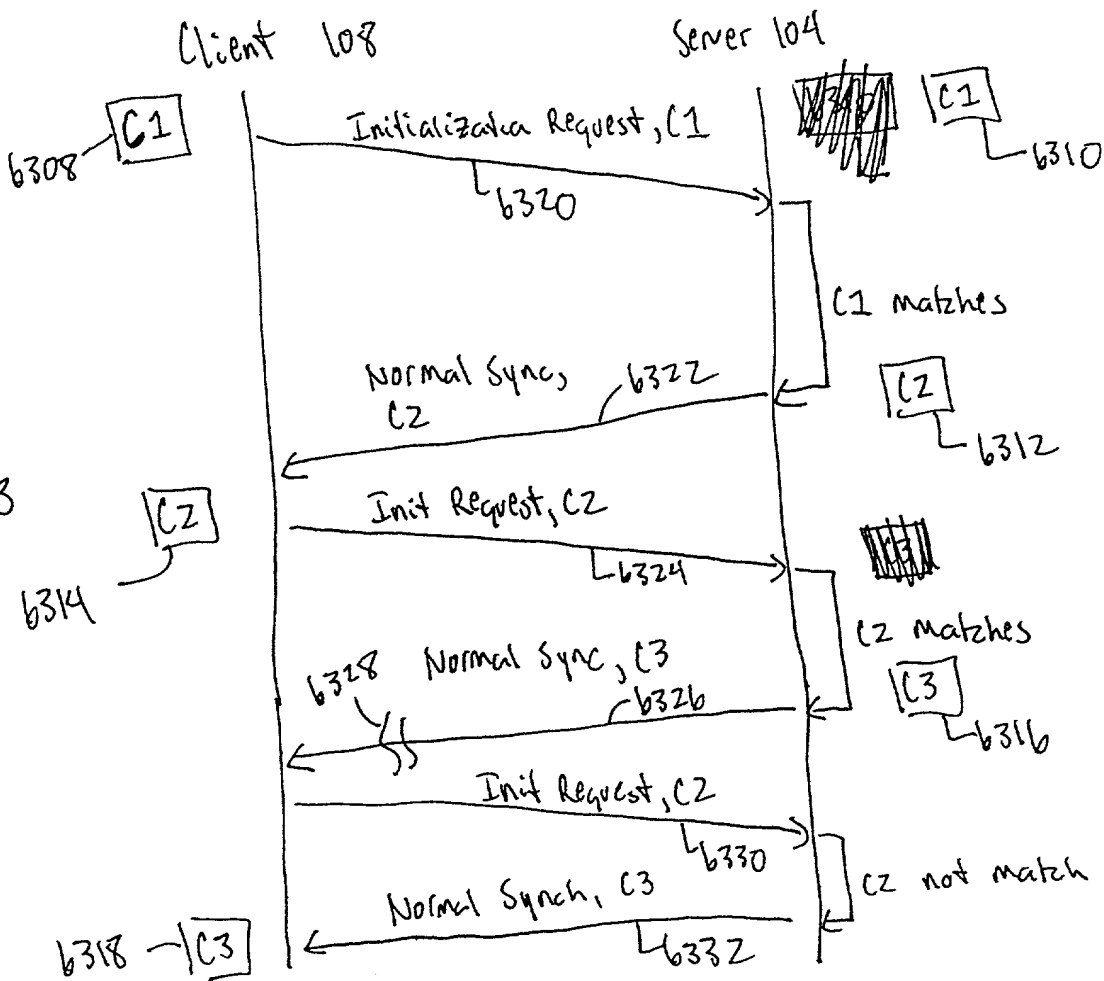 Client 108
Server 104
C1
6308
Initialization Request, C1
6320
C1
6310
C1 matches
Normal Sync,
C2
6322
C2
6312
3
C2
6314
Init Request, C2
6324
C3
C2 matches
6328
Normal Sync, C3
6326
C3
6316
Init Request, C2
6330
C2 not match
Normal Synch, C3
6332
6318
C3